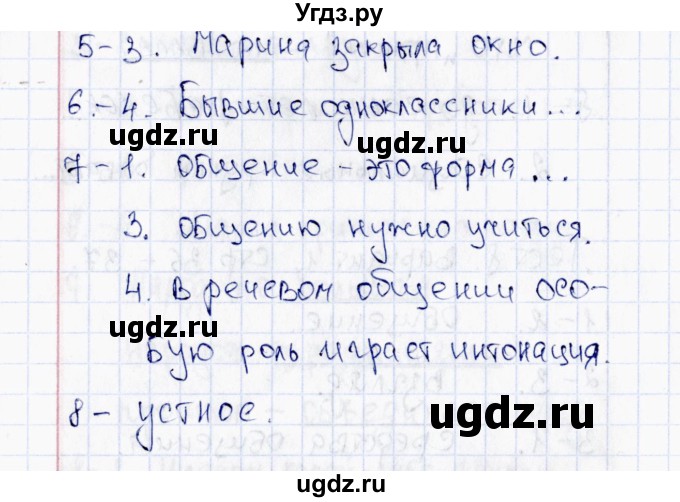 Угдз.ру
5-3. Марина закрыла окно.
6.-4. Бывшие одноклассники...
ugdz.ru ugdz.ru
7-1. Общение - это форма...
3. Общению нужно учиться.
4. В речевом общении осо-
ugdz.ru
бую роль играет интонация.
8- устное.
ugdz.ru
ugdz.ru